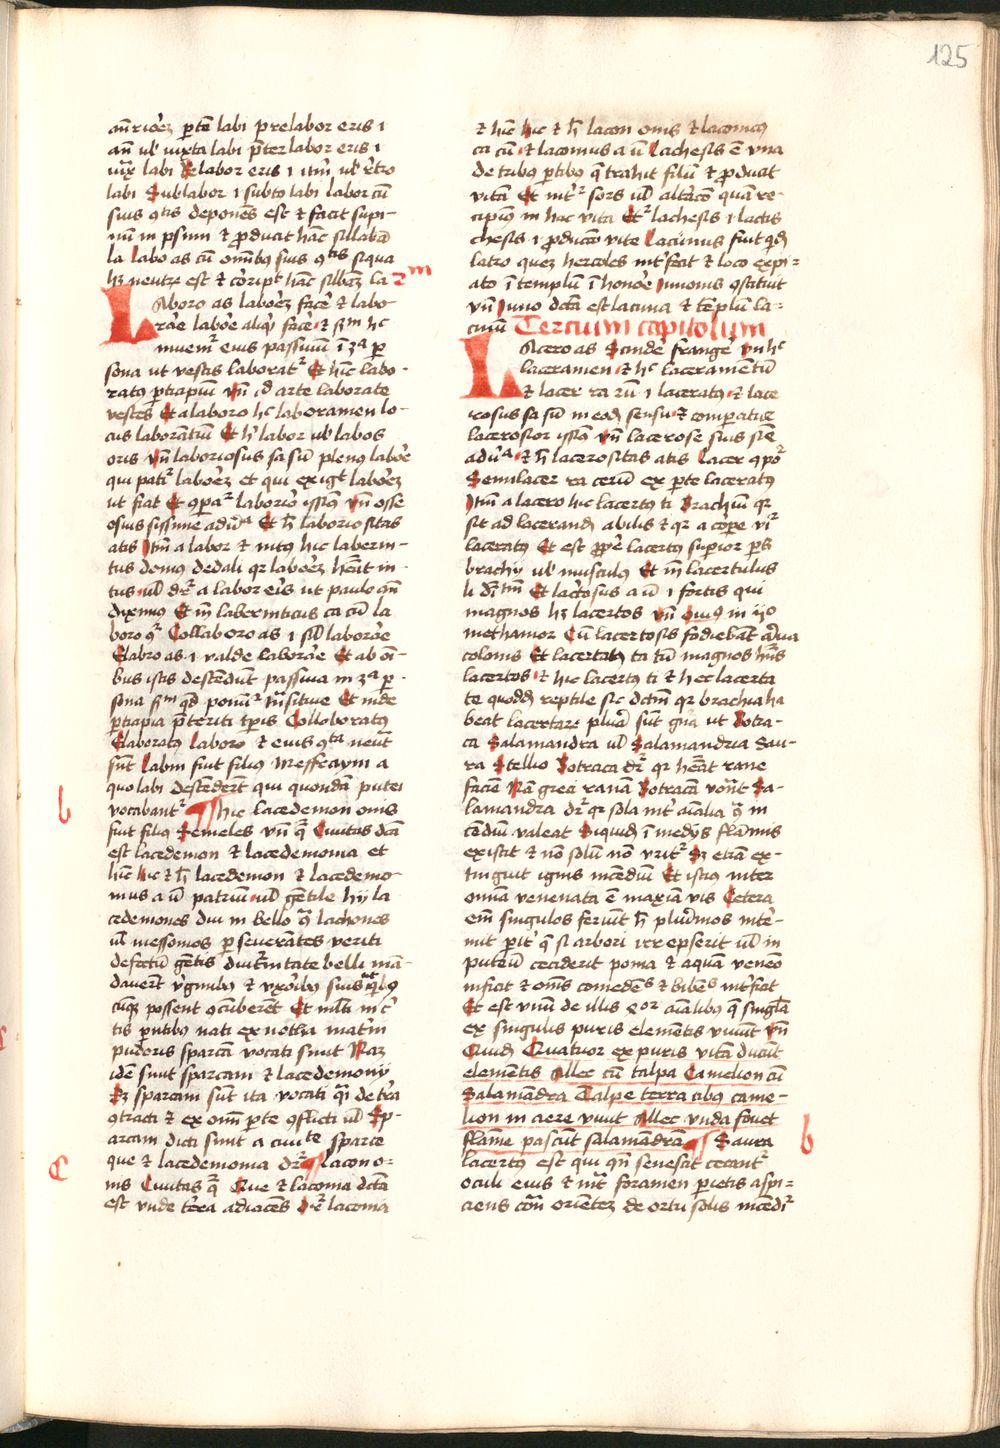 125
anrioez pte labi prelabor eris i
an ul iuxta labi preterlabor eris i
iux labi Relabor eris i itm ul retro
labi Sublabor i subto labi labor cu
suis 9tis depones est et facit supi-
nu in psum et producit hac sillaba
la labo as cu omibus suis 9tis siqua
hz neutr est et coript hac silbam la 2m
Laboro as laborez facere et labo-
rare labore aliqd facere et sm hc
muem eius passiuu i 3a p
sona ut vestis laborat Et hinc labo-
ratus pticipiu vn id arte laborate
vestes Et a laboro hc laboramen lo-
cus laborantiu Et h labor ul labos
oris vn laboriosus sa su plenus labore
qui patit laborez et qui exigit laborez
ut fiat Et 9pat laborio issius vn osse
osius sissime adua Et h laboriositas
atis Itm a labor et intus hic laberin-
tus domus dedali qr laborez hent in-
tus ul dr a labor eris ut paulo an
diximus Et in laberinticus ca cu la
boro 9r Collaboro as i sil laborare
Elabro as i valde laborare Et ab om-
bus istis descendunt passiua in 3a p-
sona sm qd ponut transitiue Et inde
pticipia preteriti tpis Collaboratus
Elaboratus laboro et eius 9ta neut
sunt Labin fiut filius Meffraym a
quo labi descenderunt qui quondam putei
vocabant Hic lacedemon onis
b
fuit filius Semeles vn q Ciuitas dca
est lacedemon et lacedemonia et
hinc hic et h lacedemon et lacedemo-
nius a u patriu ul gentile hij la
cedemones diu in bello qa lachones
ul messonios perseuerantes veriti
defectu gentis diuturnitate belli man-
dauerunt virginibus et vxoribus suis ut quibus
cuqz possent 9cuberent Et multi inc
tis parentibus nati ex notha matrum
pudoris sparcani vocati sunt Naz
idem sunt sparcani et lacedemonij
Sz sparcani sunt ita vocati qi de tra
9tracti et ex omi pte 9flicti ul Sp-
arcani dicti sunt a ciuite sparce
que et lacedemonia dr Lacono-
c
nis Ciuitas q Que et laconia dcta
est vnde terra adiacens dr laconia
et hinc hic et h lacon onis et laconicus
ca cu et laconius a u Lachesis e vna
de tribus ptibus q trahit filu et producit
vita Et int sors ul altaco quare-
cipimus in hac vita Et lachesis i lactis
chesis i productio vite Lacinius fuit qd
latro quez hercules intfecit et loco expi-
ato i templu i honore iunonis 9stituit
vn Iuno dcta est lacinia et templu la-
ciniu Tercium capitolum
Lacero as Scinde frange vn hc
laceramen et hc laceramentu
et lacer ra ru i laceratus et lace
rosus sa su in eod sensu et comparatur
lacerosior issius vn lacerose sius sie
adua et h lacerositas atis Lacer 9por
Semilacer ra ceru ex parte laceratus
Itm a lacero hic lacertus ti Brachiu qr
sit ad lacerand abilis et qr a corpore vir
laceratus Et est prope lacertus superior pars
brachij ul musculus Et in lacertulus
li di tm Et lactosus a u i fortis qui
magnos hz lacertos vn Ouidius in ijo
methamor Cu lacertosis fodiebat arua
colonis Et lacertatus ta tu magnos hns
lacertos et hic lacertus ti et hec lacerta
te quodd reptile sic dctm qr brachia ha
beat lacertare plura sunt gna ut Botra-
ca Salamandra ul Salamandria Sau-
ra Stellio Botraca dr qr henat rane
facie Na greci rana Botraca vocant Sa-
lamandra dr qr sola int aialia qa in
cediu valeat Siquid i medijs flamis
existit et no solu no vrit Sz etia ex-
tinguit ignis incediu Et istius inter
omia venenata e maxia vis Cetera
em singulos feriunt h plurimos inte-
rimit pit q si arbori irrepserit ul in
puteu ceciderit poma et aqua veneno
inficit et omis comedens et bibens intficit
Et est vnu de illis 4or aialibus q singla
ex singulis puris elementis viuunt vn
Quidam Quatuor ex puris vita ducut
elementis Allec cu talpa Camelion cu
Salamandra Talpe terra cibus came-
lion in aere viuit Allec vnda fouet
flame pascut salamandram Saura
b
lacertus est qui qn senescit cecant
oculi eius et intr foramen parietis aspi-
ciens contra orientez de ortu solis incedit